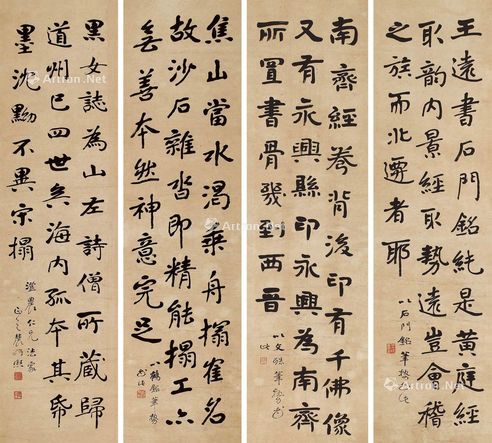 王遠書石門銘純是黃庭經
取韵內景經取勢遠豈會稽
之族而北遷者耶
以石門銘筆
南齊經卷背後印有千佛像
又有永興縣印永興為南齊
所置書骨幾到西晉
以文
筆
焦山當水渴乘舟搨崔名
故沙石雜沓即精能搨工亦
無善本然神意完足
以鶴銘筆勢
黑女誌為山左詩僧所藏歸
道州已四世矣海内孤本其帋
墨沈黝不異宋搨
農仁兄法家
Artron.Net
Artron.Net
Artron.Net
Artron.Net